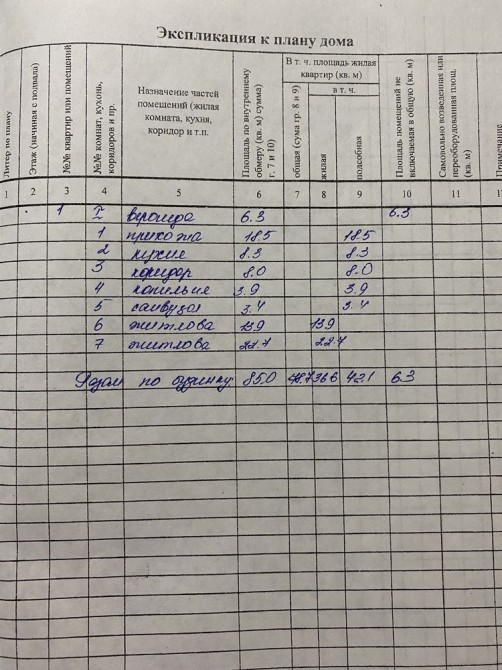 Экспликация к плану дома
Литер по плану
Этаж (начиная с подвала)
№№ квартир или помещений
№№ комнат, кухонь, коридоров и пр.
Назначение частей помещений (жилая комната, кухня, коридор и т.п.
Площадь по внутреннему обмеру (кв. м) сумма) г. 7 и 10)
В т. ч. площадь жилая квартир (кв. м)
общая (сума гр. 8 и 9)
в т. ч.
жилая
подсобная
Площадь помещений не включаемая в общую (кв. м)
Самовольно возведенная или переоборудованная площ. (кв. м)
Примечание
1 2 3 4 5 6 7 8 9 10 11 12
1 I веранда 6.3 6.3
1 прихожа 18.5 18.5
2 кухня 8.3 8.3
3 коридор 8.0 8.0
4 котельня 3.9 3.9
5 санвузол 3.4 3.4
6 житлова 13.9 13.9
7 житлова 22.7 22.7
Разом по будинку: 85.0 78.7 36.6 42.1 6.3